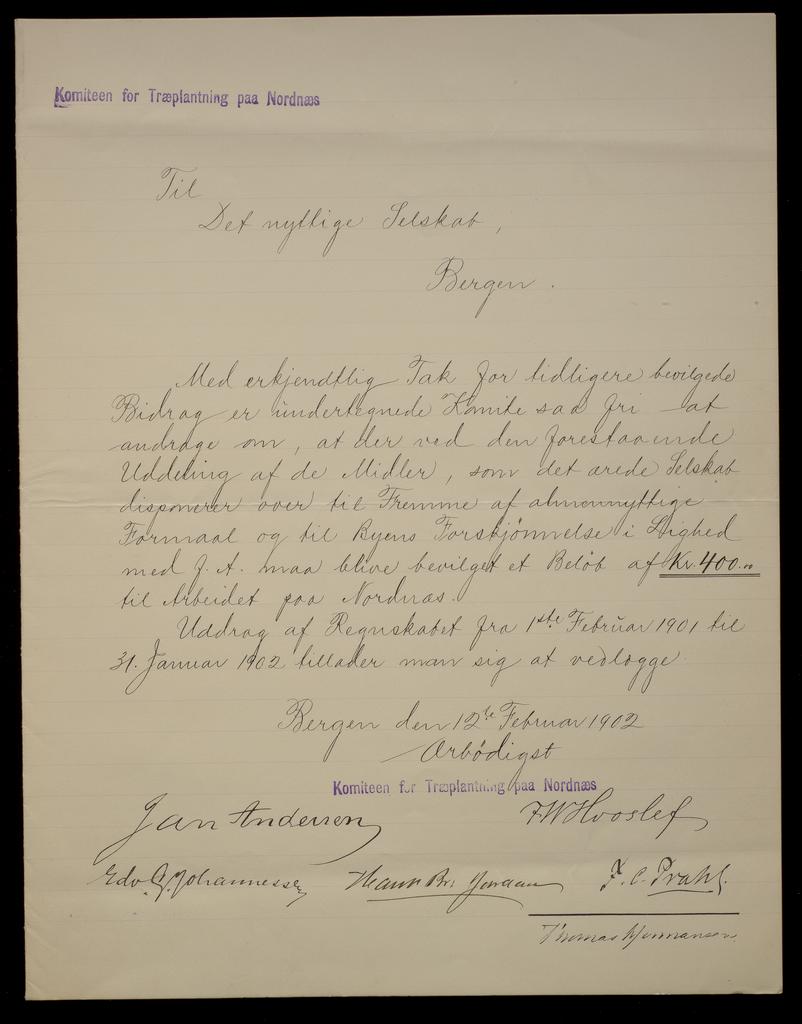 Komiteen for Træplantning paa Nordnæs
Til
Det nyttige Selskab,
Bergen.
Med erkjendtlig Tak for tidligere bevilgede
Bidrag er undertegnede Komite saa fri at
andrage om, at der ved den forestaaende
Uddeling af de Midler, som det ærede Selskab
disponerer over til Fremme af almennyttige
Formaal og til Byens Forskjønnelse i Lighed
med f. A. maa blive bevilget et Beløb af Kr. 400.00
til Arbeidet paa Nordnæs.
Uddrag af Regnskabet fra 1ste Februar 1901 til
31. Januar 1902 tillader man sig at vedlægge.
Bergen den 12te Februar 1902
Ærbødigst
Komiteen for Træplantning paa Nordnæs
Jan Andersen
F W Hvoslef
Edv. G. Johannessen
F. C. Prahl.
Thomas